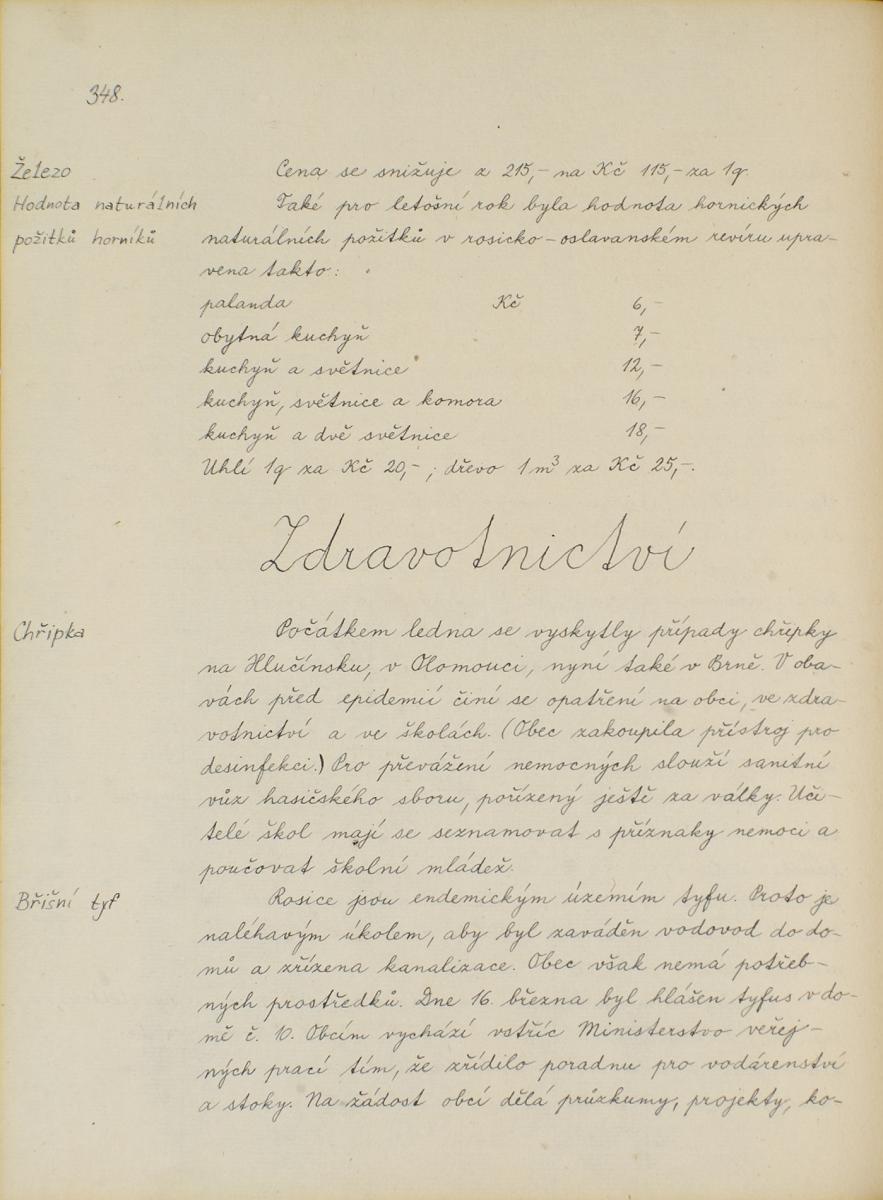 348.
Železo
Cena se snižuje z 215,- na Kč 115,- za 1q.
Hodnota naturálních
požitků horníků
Také pro letošní rok byla hodnota hornických
naturálních požitků v rosicko-oslavanském revíru upra-
vena takto:
palanda Kč 6,-
obytná kuchyň 7,-
kuchyň a světnice 12,-
kuchyň, světnice a komora 16,-
kuchyň a dvě světnice 18,-
Uhlí 1q za Kč 20,-; dřevo 1 m³ za Kč 25,-.
Zdravotnictví
Chřipka
Počátkem ledna se vyskytly případy chřipky
na Hlučínsku, v Olomouci, nyní také v Brně. V oba-
vách před epidemií činí se opatření na obci, ve zdra-
votnictví a ve školách. (Obec zakoupila přístroj pro
desinfekci.) Pro převážení nemocných slouží sanitní
vůz hasičského sboru, pořízený ještě za války. Uči-
telé škol mají se seznamovat s příznaky nemoci a
poučovat školní mládež.
Břišní tyf
Rosice jsou endemickým územím tyfu. Proto je
naléhavým úkolem, aby byl zaváděn vodovod do do-
mů a zřízena kanalizace. Obec však nemá potřeb-
ných prostředků. Dne 16. března byl hlášen tyfus v do-
mě č. 10. Obcím vychází vstříc Ministerstvo veřej-
ných prací tím, že zřídilo poradnu pro vodárenství
a stoky. Na žádost obcí dělá průzkumy, projekty, ko-